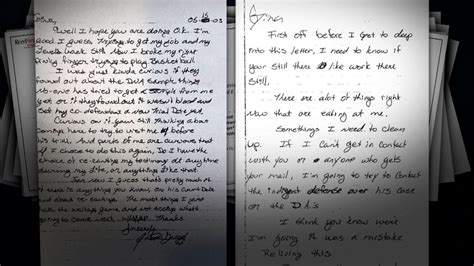 05-16-03
Well I hope you are doing O.K. I'm
good I guess. Trying to get my job and my
levels back still. Now I broke my right
finger trying to play Basketball
I was just kinda curious if they
found out about the DNA sample thing
no-one has tried to get a sample from me
yet or if they found out it wasn't blood and
set my co-defendant a new Trial Date yet.
Curious on if your still thinking about
coming here to try to see me before
his trial. And parts of me are curious that
if I choose to do this again, Do I have the
choice of re-canting my testimony at any time
during my life, or anything like that.
For now I guess that's pretty much it
anything you know on his Court Date
and about re-canting. The most thing I
going to come back, Thanks
Sincerely
First off before I get to deep
into this letter, I need to know if
your still there like work there
still.
There are alot of things right
now that are eating at me.
Somethings I need to clean
up. If I can't get in contact
with you or anyone who gets
your mail, I'm going to try to contact
the indigent defense over his case
or the D.A's
I think you know were
I'm going it was a mistake
Reliving this